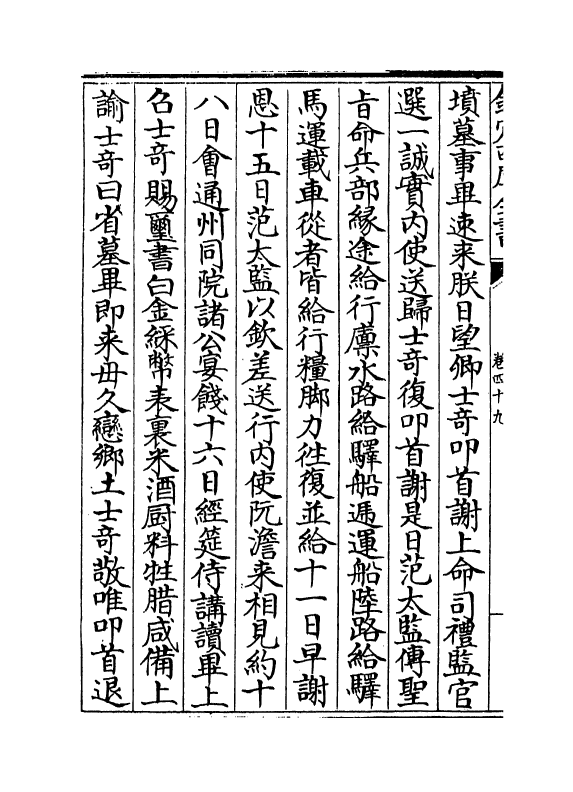 欽定四庫全書
卷四十九
墳墓事畢速来朕日望卿士竒叩首謝上命司禮監官
選一誠實内使送歸士竒復叩首謝是日范太監傳聖
㫖命兵部縁途給行廪水路給驛船逓運船陸路給驛
馬運載車從者皆給行糧脚力往復並給十一日早謝
恩十五日范太監以欽差送行内使阮澹来相見約十
八日會通州同院諸公宴餞十六日經筵侍講讀畢上
召士竒賜璽書白金綵幣表裏米酒厨料牲腊咸備上
諭士竒曰省墓畢即来毋久戀鄉土士竒敬唯叩首退